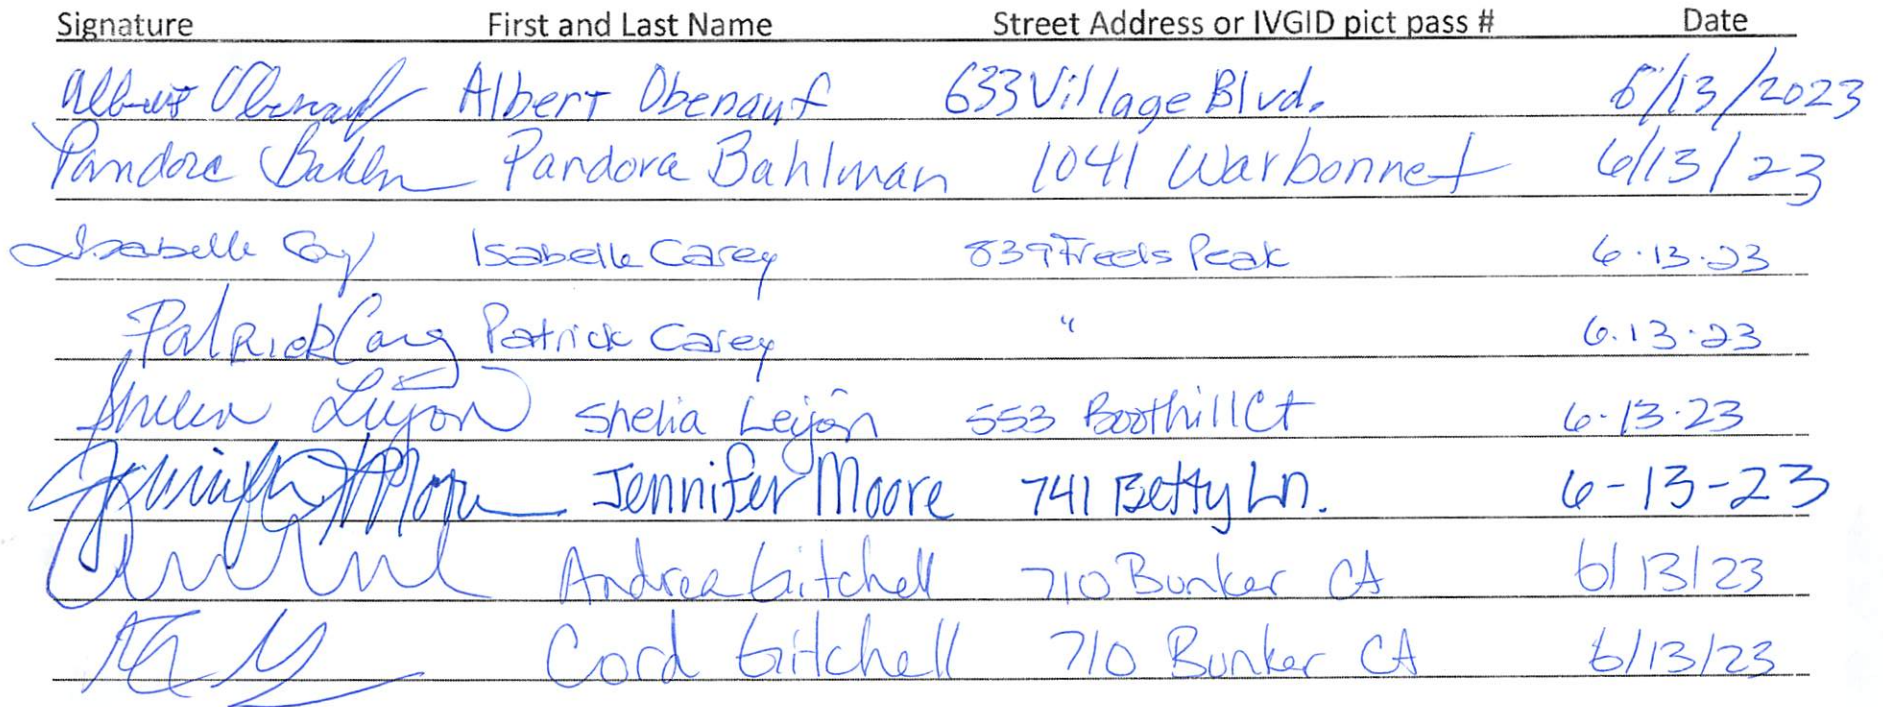 Signature First and Last Name Street Address or IVGID pict pass # Date
Albert Obenauf Albert Obenauf 633 Village Blvd. 6/13/2023
Pandora Bahlm Pandora Bahlman 1041 Warbonnet 6/13/23
Isabelle Cay Isabelle Carey 839 Freels Peak 6.13.23
Patrick Carey Patrick Carey " 6.13.23
Shelia Leijon Shelia Leijon 553 Boothill Ct 6.13.23
Jennifer Moore Jennifer Moore 741 Betty Ln. 6-13-23
Andrea Gitchell 710 Bunker Ct 6/13/23
Cord Gitchell 710 Bunker Ct 6/13/23